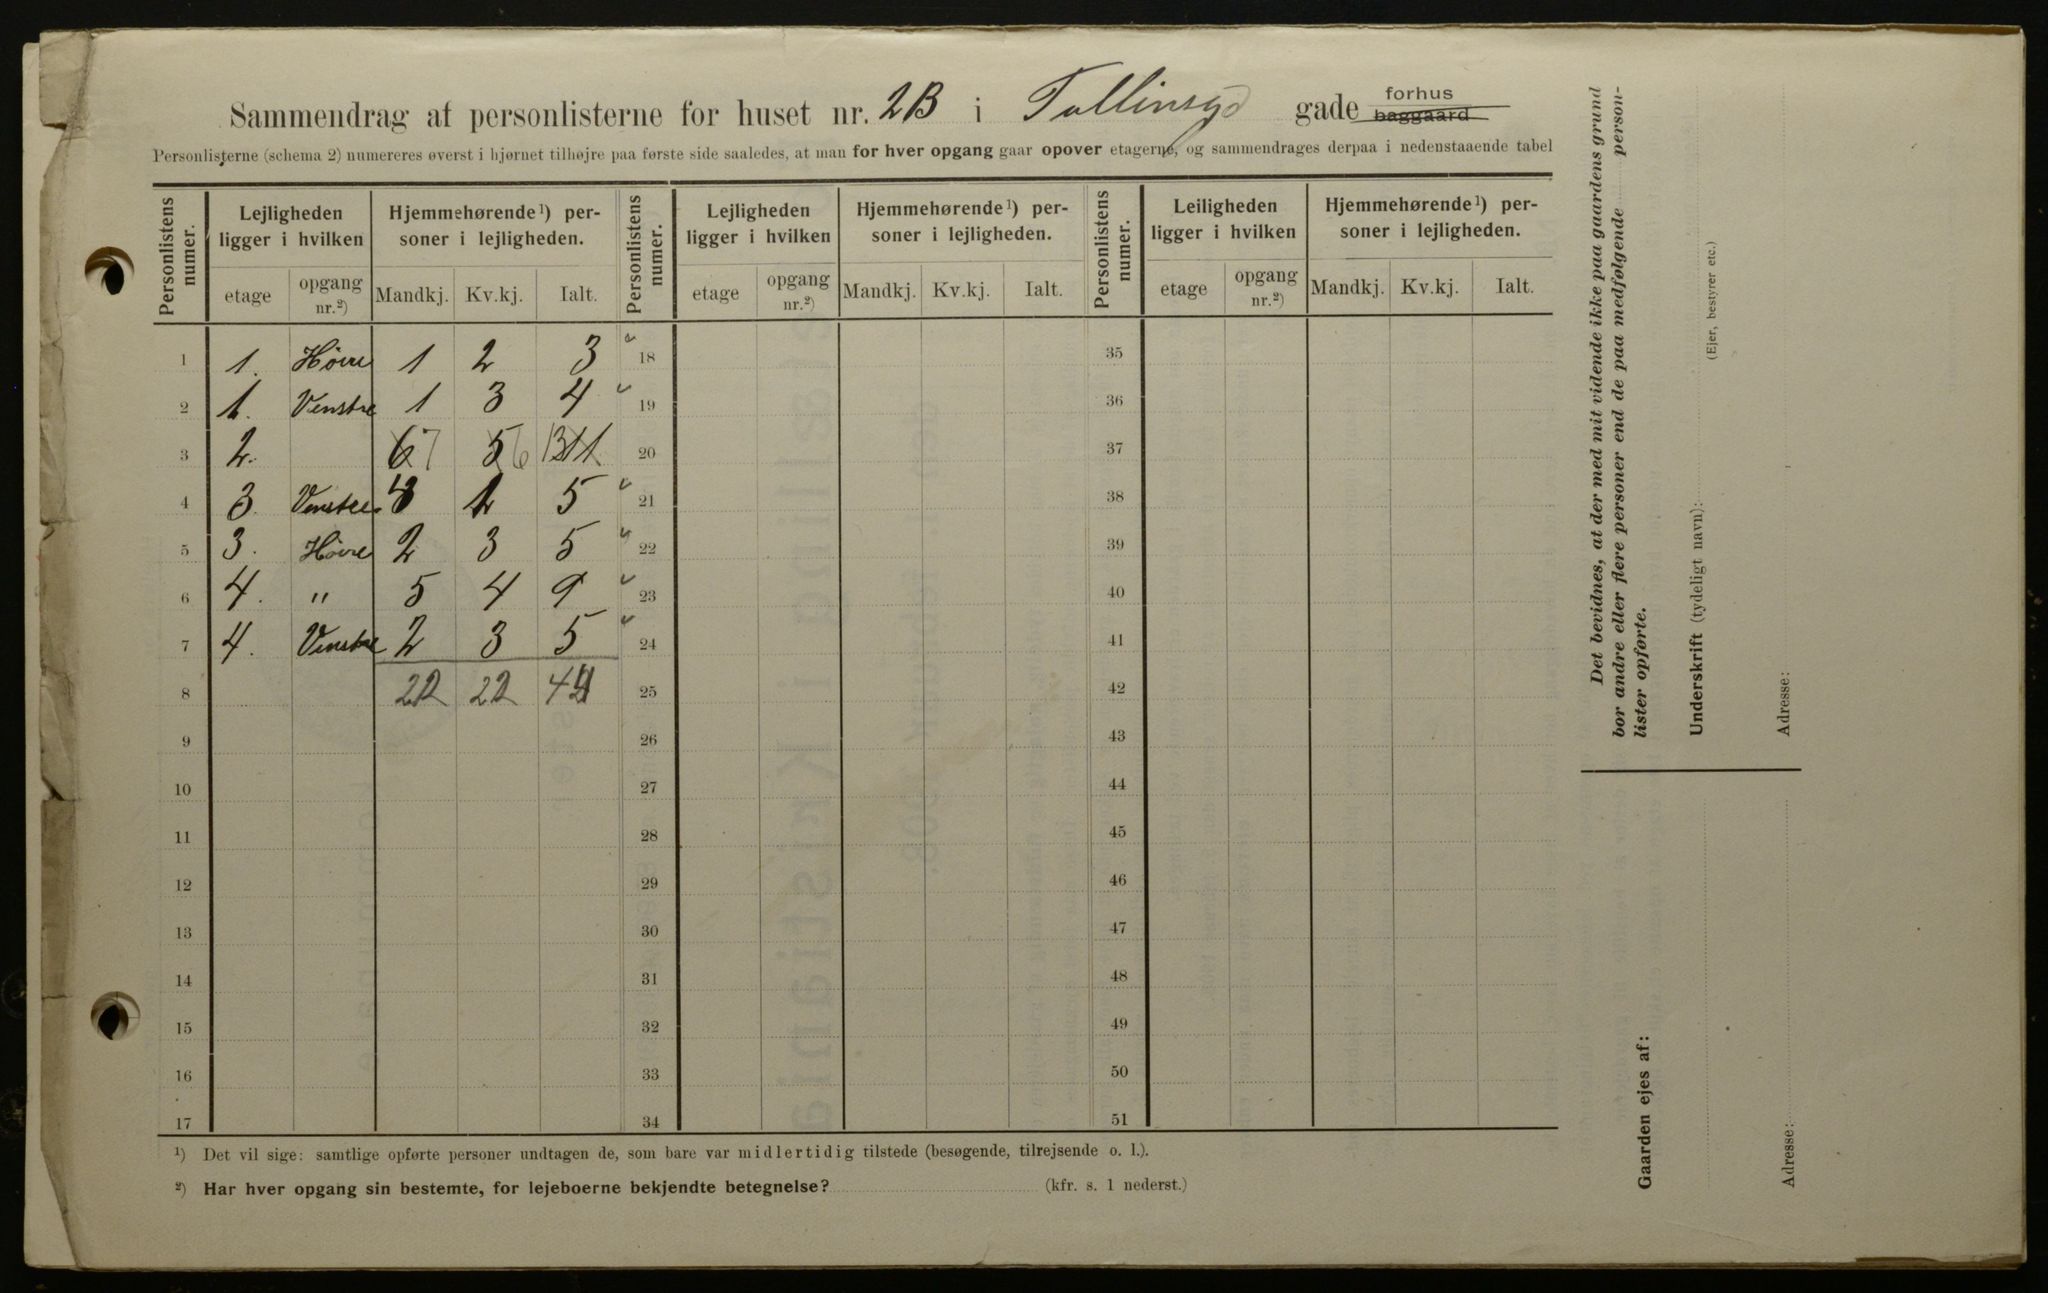 Sammendrag af personlisterne for huset nr. 2B i Tullinsgd gade forhus baggaard
Personlisterne (schema 2) numereres øverst i hjørnet tilhøjre paa første side saaledes, at man for hver opgang gaar opover etagerne, og sammendrages derpaa i nedenstaaende tabel
Personlistens numer. Lejligheden ligger i hvilken Hjemmehørende¹) personer i lejligheden. Personlistens numer. Lejligheden ligger i hvilken Hjemmehørende¹) personer i lejligheden. Personlistens numer. Leiligheden ligger i hvilken Hjemmehørende¹) personer i lejligheden.
etage opgang nr.²) Mandkj. Kv.kj. Ialt. etage opgang nr.²) Mandkj. Kv.kj. Ialt. etage opgang nr.²) Mandkj. Kv.kj. Ialt.
1 1. Høire 1 2 3 18 35
2 1. Venstre 1 3 4 19 36
3 2. 6 7 5 6 13 11 20 37
4 3. Venstre 5 21 38
5 3. Høire 2 3 5 22 39
6 4. " 5 4 9 23 40
7 4. Venstre 2 3 5 24 41
8 22 22 44 25 42
9 26 43
10 27 44
11 28 45
12 29 46
13 30 47
14 31 48
15 32 49
16 33 50
17 34 51
¹) Det vil sige: samtlige opførte personer undtagen de, som bare var midlertidig tilstede (besøgende, tilrejsende o. l.).
²) Har hver opgang sin bestemte, for lejeboerne bekjendte betegnelse? (kfr. s. 1 nederst.)
Det bevidnes, at der med mit vidende ikke paa gaardens grund
bor andre eller flere personer end de paa medfølgende personlister opførte.
Underskrift (tydeligt navn):
(Ejer, bestyrer etc.)
Adresse:
Gaarden ejes af:
Adresse: